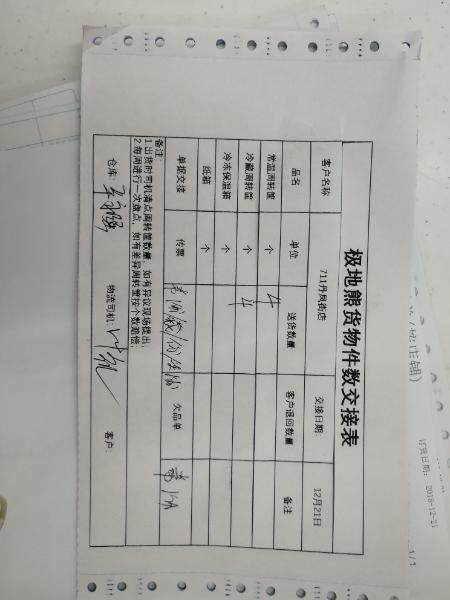 极地熊货物件数交接表
客户名称 711丹凤街店 交接日期： 12月21日
品名 单位 送货数量 客户退回数量 备注
常温周转筐 个 4
冷藏周转筐 个 4
冷冻保温箱 个
纸箱 个
单据交接 传票 欠品单
备注：
1.出货时司机请点周转筐数量，如有异议现场提出；
2.每周进行一次盘点，如有差异周转筐按个数赔偿；
仓库： 物流司机： 客户：
订货日期： 2018-12-21
1/1